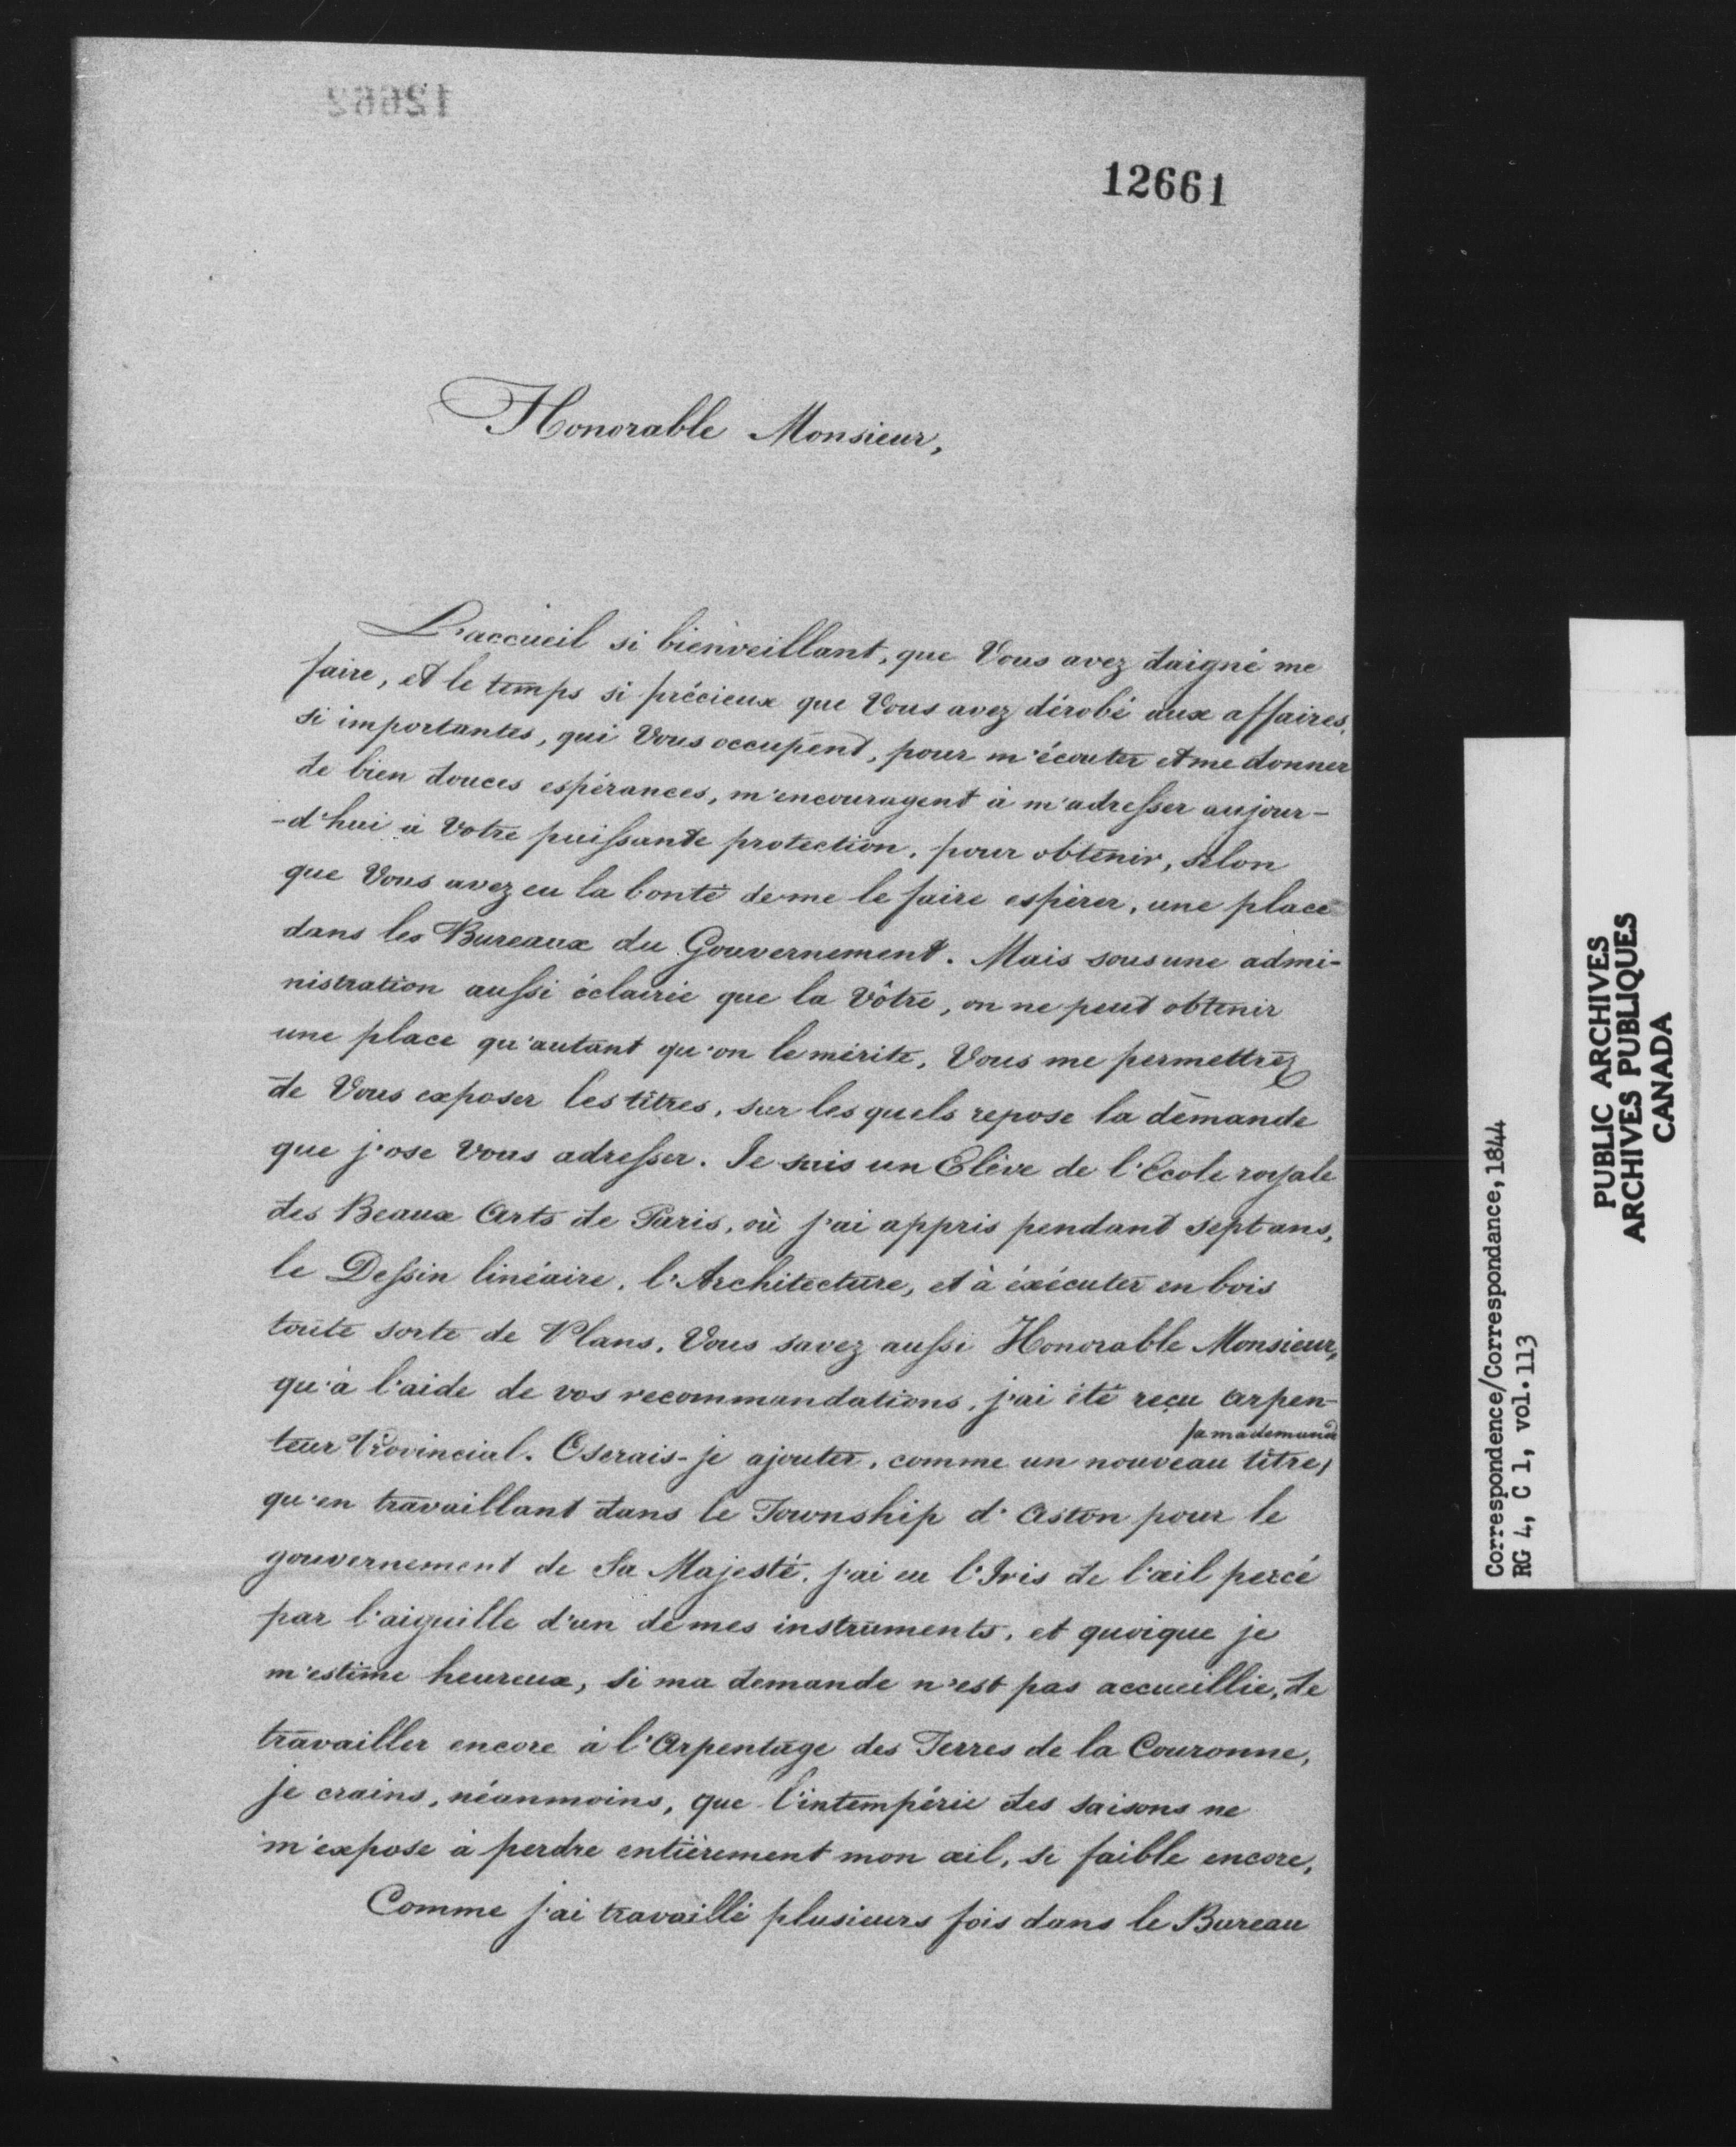 12662
12661
Honorable Monsieur,
L'accueil si bienveillant, que Vous avez daigné me
faire, et le temps si précieux que Vous avez dérobé aux affaires,
si importantes, qui Vous occupent, pour m'écouter et me donner
de bien douces espérances, m'encouragent à m'adresser aujour-
-d'hui à Votre puissante protection, pour obtenir, selon
que Vous avez eu la bonté de me le faire espérer, une place
dans les Bureaux du Gouvernement. Mais sous une admi-
nistration aussi éclairée que la Vôtre, on ne peut obtenir
une place qu'autant qu'on le mérite, Vous me permettrez
de Vous exposer les titres, sur les quels repose la demande
que j'ose Vous adresser. Je suis un Elève de l'Ecole royale
des Beaux Arts de Paris, où j'ai appris pendant sept ans,
le Dessin linéaire, l'Architecture, et à éxécuter en bois
toute sorte de Plans, Vous savez aussi Honorable Monsieur,
qu'à l'aide de vos recommandations, j'ai été reçu Arpen-
teur Provincial. Oserais-je ajouter, comme un nouveau titre,
/à ma demande
qu'en travaillant dans le Township d'Aston pour le
gouvernement de Sa Majesté, j'ai eu l'Iris de l'œil percé
par l'aiguille d'un de mes instruments, et quoique je
m'estime heureux, si ma demande n'est pas accueillie, de
travailler encore à l'Arpentage des Terres de la Couronne,
je crains, néanmoins, que l'intempérie des saisons ne
m'expose à perdre entièrement mon œil, si faible encore,
Comme j'ai travaillé plusieurs fois dans le Bureau
Correspondence/Correspondance, 1844
RG 4, C 1, vol. 113
PUBLIC ARCHIVES
ARCHIVES PUBLIQUES
CANADA